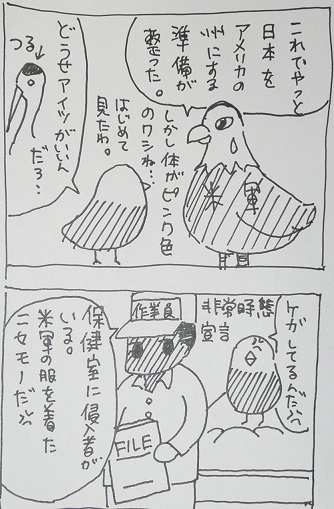 これでやっと
日本を
アメリカの
州にする
準備が
整った。
米軍
しかし体がピンク色
のワシね…
はじめて
見たわ。
つる→
どうせアイツがいいん
だろ…
ケガしてるんだ!!
非常時態
宣言
作業員
FILE
保健室に侵入者が
いる。
米軍の服を着た
ニセモノだ!!